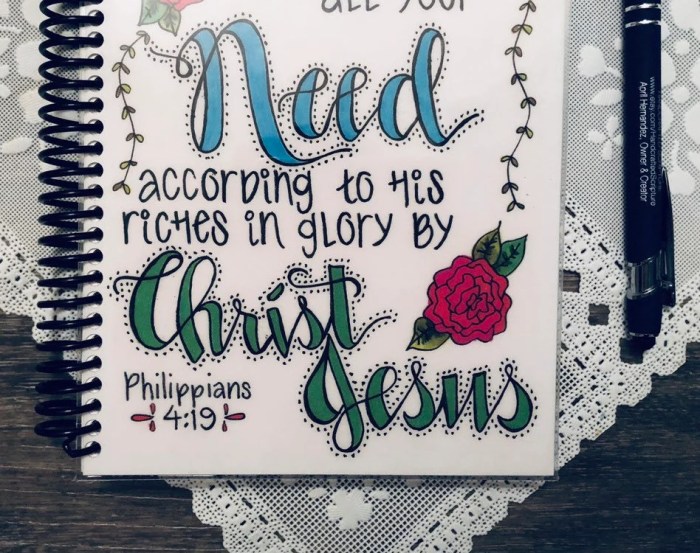 all your
Need
according to His
riches in glory by
Christ
Jesus
Philippians
4:19
April Hernandez, Owner & Creator